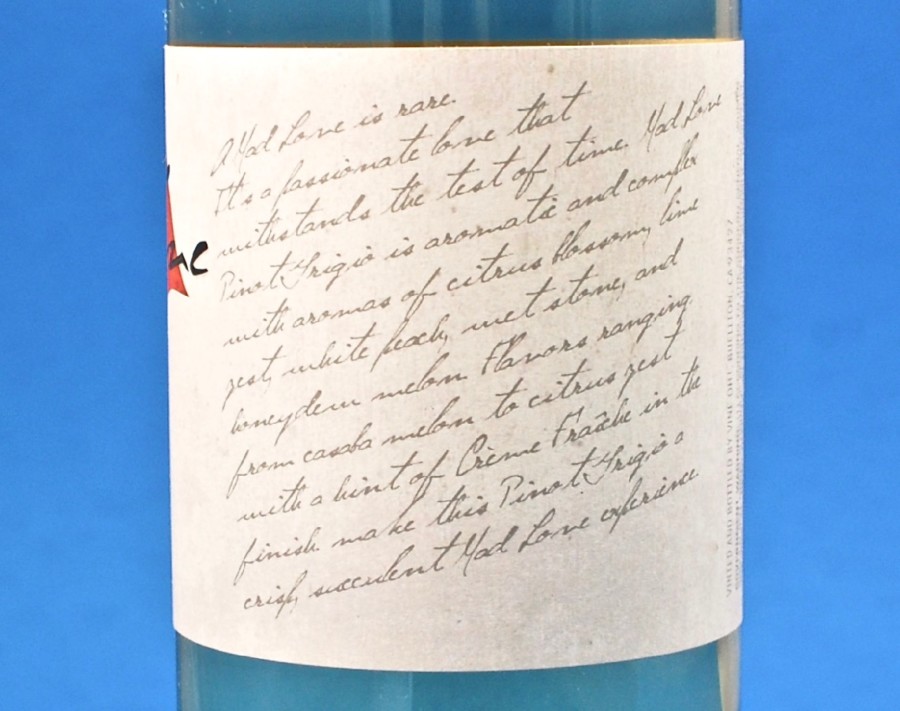 A Mad Love is rare.
It's a passionate love that
withstands the test of time. Mad Love
Pinot Grigio is aromatic and complex
with aromas of citrus blossom, lime
zest, white peach, wet stone, and
honeydew melon. Flavors ranging
from casaba melon to citrus zest
with a hint of Crème Fraîche in the
finish make this Pinot Grigio a
crisp, succulent Mad Love experience.
VINTED AND BOTTLED BY VINE